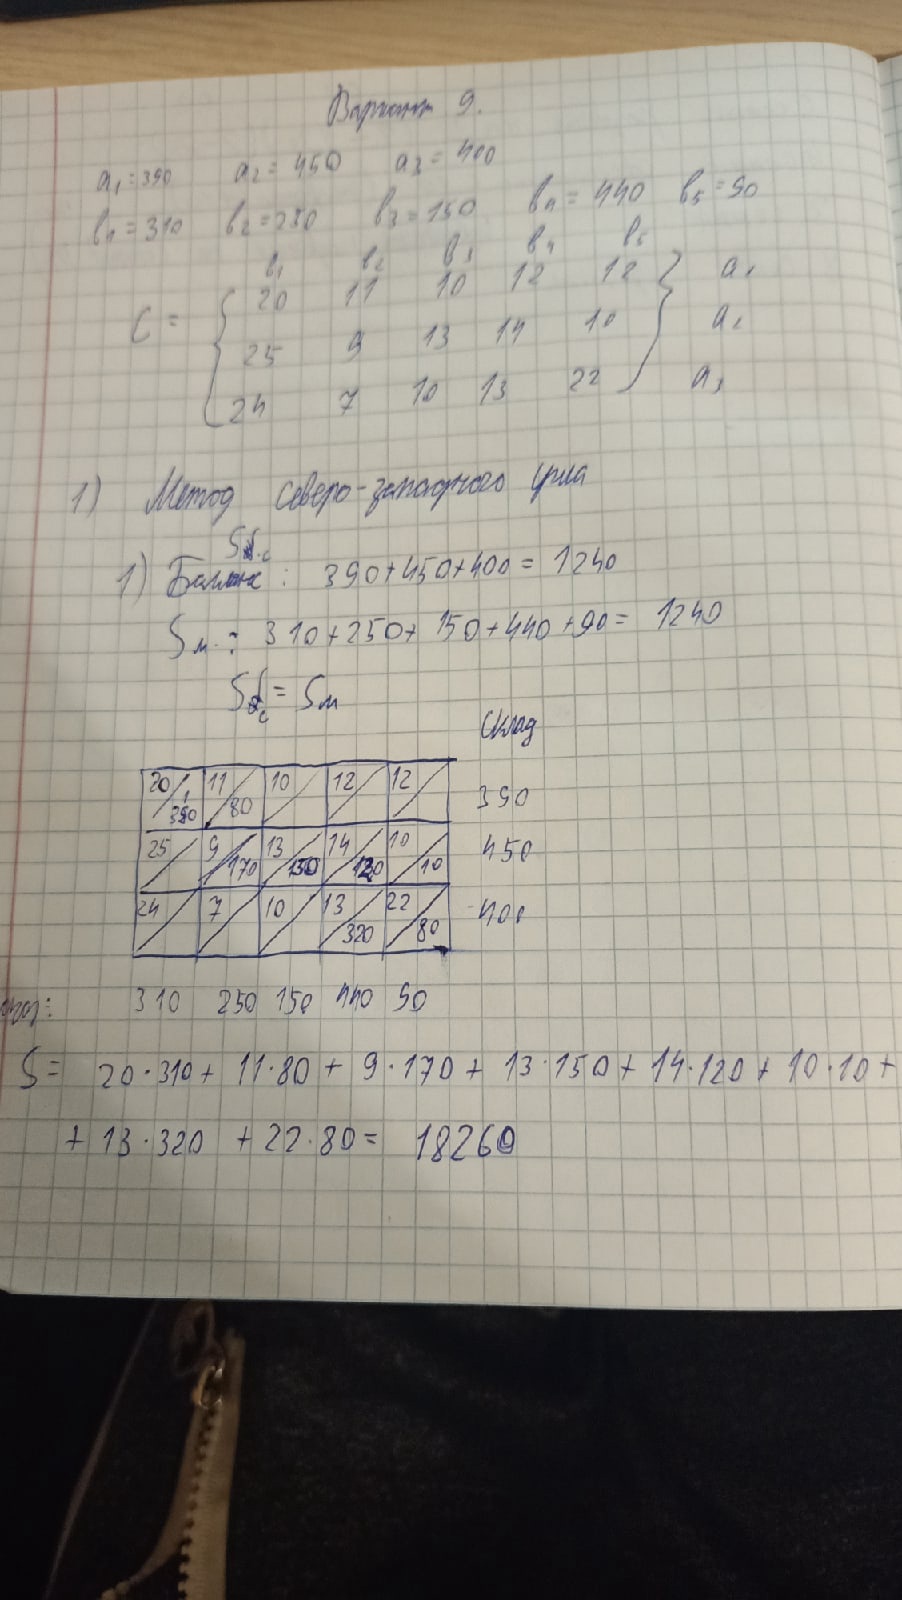 Вариант 9.
a₁=390 a₂=450 a₃=400
b₁=310 b₂=250 b₃=150 b₄=440 b₅=90
b₁ b₂ b₃ b₄ b₅
C = { 20 11 10 12 12 } a₁
25 9 13 14 10 a₂
24 7 10 13 22 a₃
1) Метод северо-западного угла
1) Баланс: 390+450+400=1240
Sм.: 310+250+150+440+90= 1240
= Sм
Склад
20 11 80 10 12 12 390
25 9 170 13 150 14 120 10 10 450
24 7 10 13 320 22 80 400
310 250 150 440 90
S= 20·310+ 11·80 + 9·170+ 13·150+ 14·120 + 10·10+
+ 13·320 + 22·80= 18260